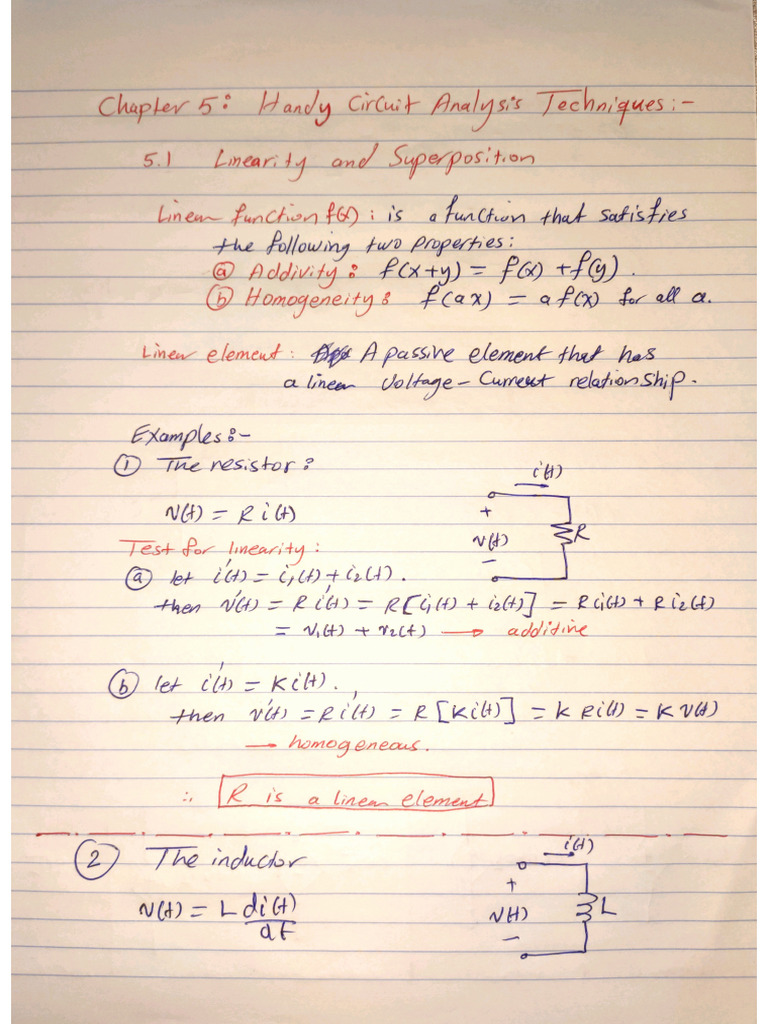 Chapter 5: Handy Circuit Analysis Techniques:-
5.1 Linearity and Superposition
Linear function f(x): is a function that satisfies
the following two properties:
ⓐ Addivity: f(x+y) = f(x) + f(y).
ⓑ Homogeneity: f(ax) = a f(x) for all a.
Linear element: A passive element that has
a linear Voltage-Current relationship.
Examples:-
① The resistor:
i(t)
v(t) = R i(t)
+
v(t)
R
−
Test for linearity:
ⓐ let i'(t) = i₁(t) + i₂(t).
then v'(t) = R i'(t) = R[i₁(t) + i₂(t)] = R i₁(t) + R i₂(t)
= v₁(t) + v₂(t) → additive
ⓑ let i'(t) = K i(t).,
then v'(t) = R i'(t) = R[K i(t)] = K R i(t) = K v(t)
→ homogeneous.
∴ R is a linear element
② The inductor
i(t)
v(t) = L di(t)/dt
+
v(t)
L
−